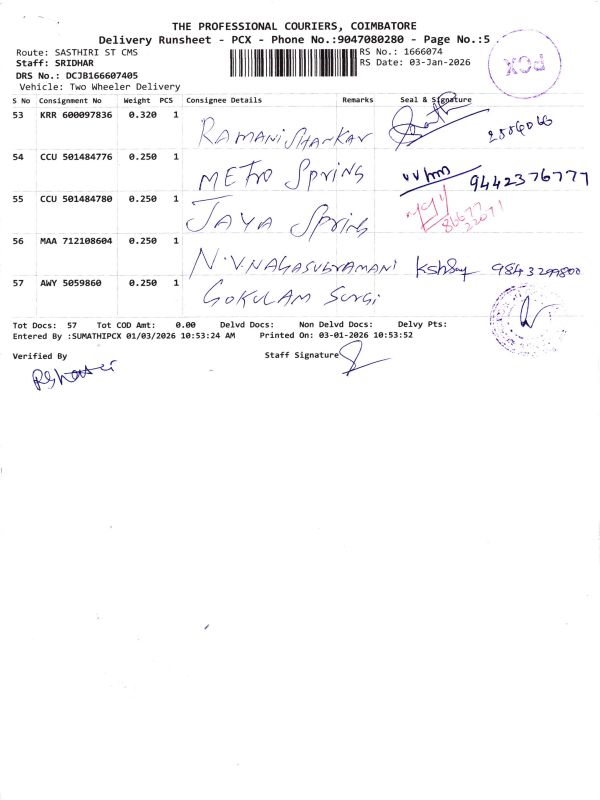 THE PROFESSIONAL COURIERS, COIMBATORE
Delivery Runsheet - PCX - Phone No.:9047080280 - Page No.:5
Route: SASTHIRI ST CMS RS No.: 1666074
Staff: SRIDHAR RS Date: 03-Jan-2026
DRS No.: DCJB166607405
Vehicle: Two Wheeler Delivery
PCX
S No Consignment No Weight PCS Consignee Details Remarks Seal & Signature
53 KRR 600097836 0.320 1 RAMANI SHANKAR
54 CCU 501484776 0.250 1 METRO SPRING 9442376777
55 CCU 501484780 0.250 1 JAYA SPRING 86677 22071
56 MAA 712108604 0.250 1 N.V.NAGASUBRAMANI
57 AWY 5059860 0.250 1 GOKULAM SURGI
Tot Docs: 57 Tot COD Amt: 0.00 Delvd Docs: Non Delvd Docs: Delvy Pts:
Entered By :SUMATHIPCX 01/03/2026 10:53:24 AM Printed On: 03-01-2026 10:53:52
Verified By Staff Signature